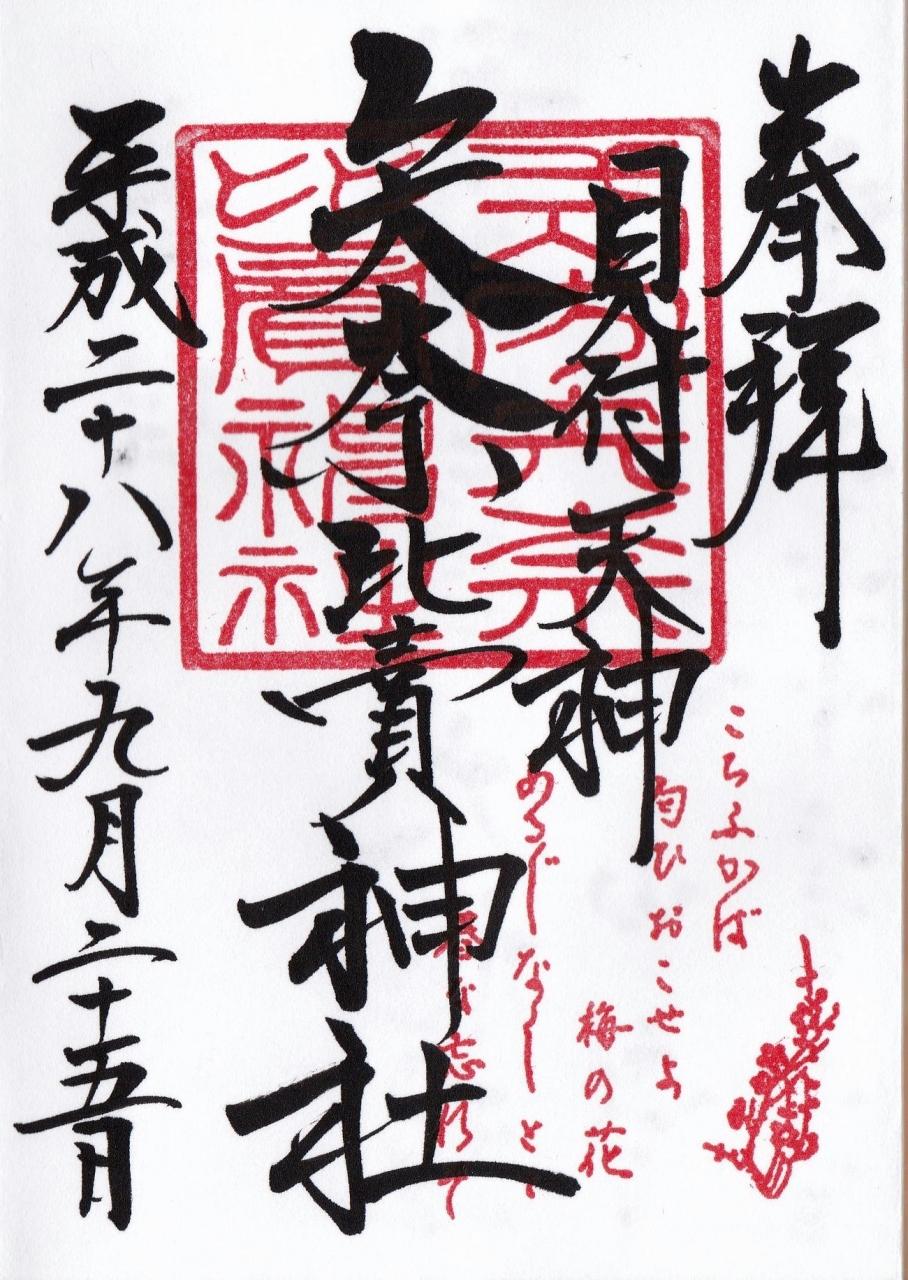 奉拝
こちふかば
匂ひおこせよ
梅の花
見付天神
あるじなしとて
春な忘れそ
矢奈比賣神社
平成二十八年九月二十五日